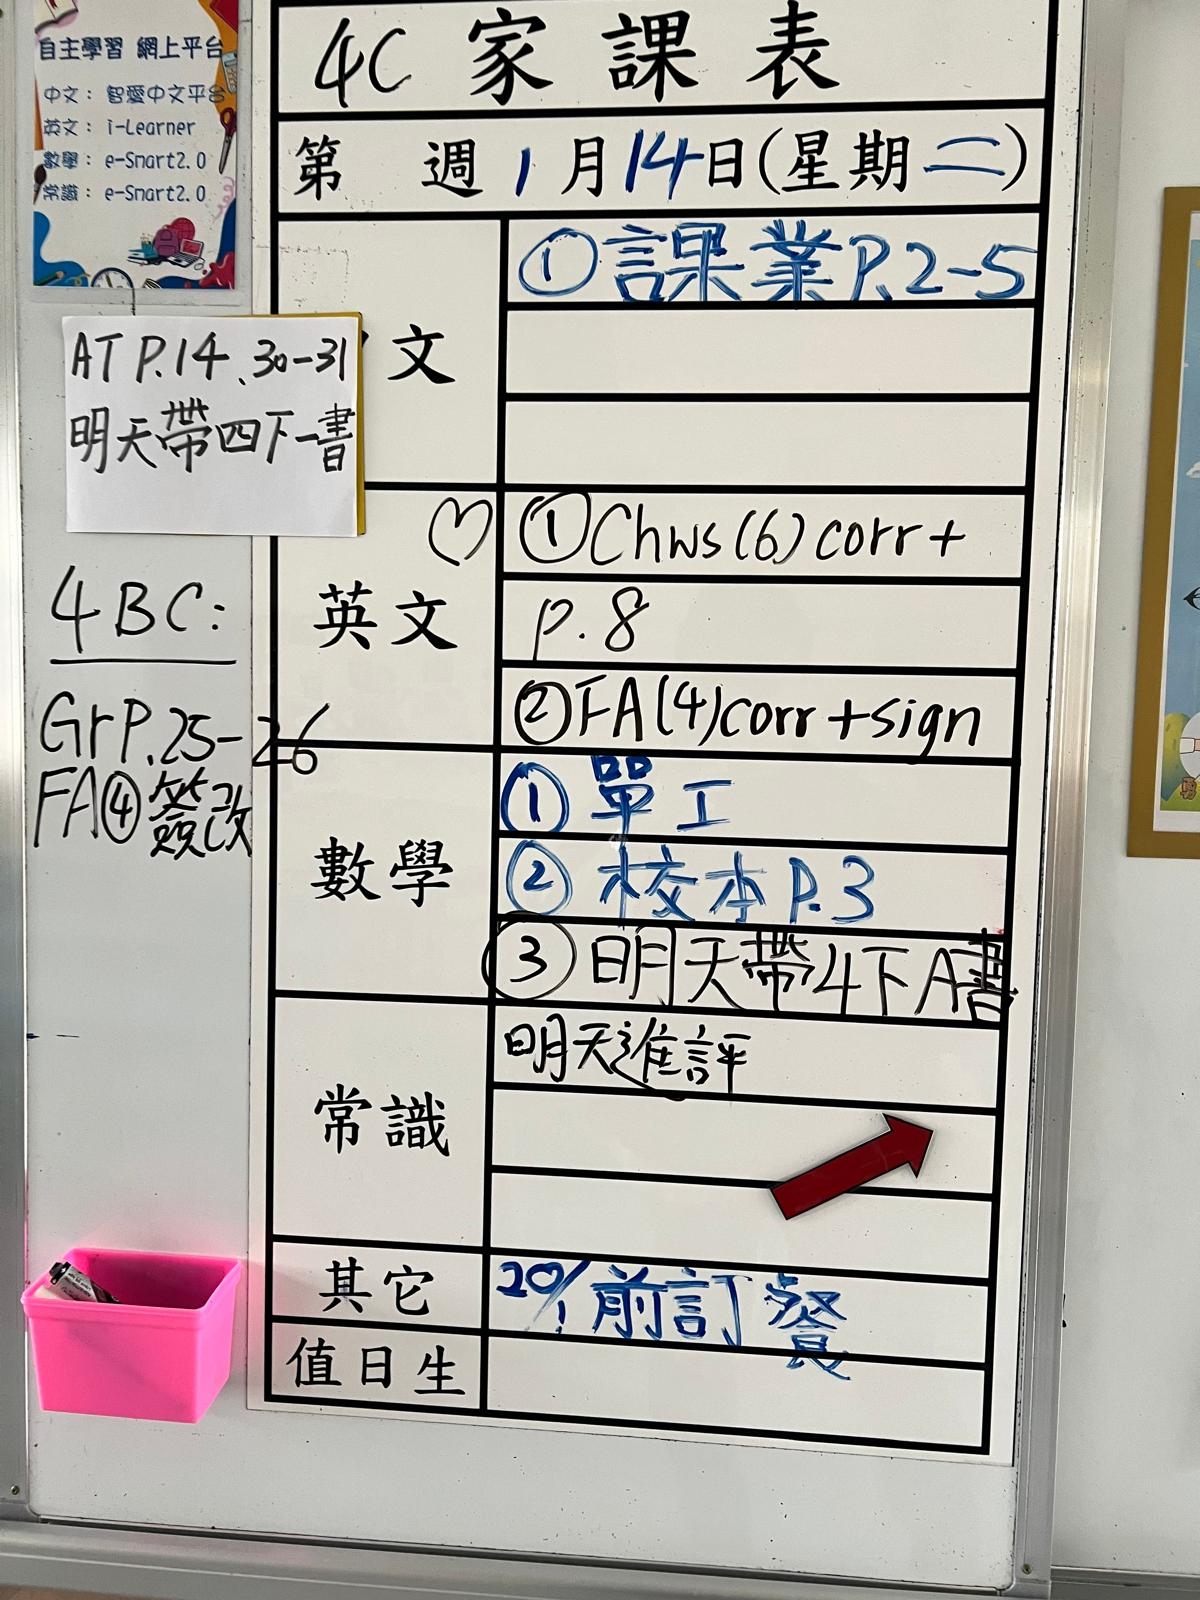 自主學習 網上平台
中文： 智愛中文平台
英文： i-Learner
數學： e-Smart2.0
常識： e-Smart2.0
AT P.14、30-31
明天帶四下一書
4BC:
Gr P.25-26
FA④簽改
4C 家課表
第 週 1月14日(星期二)
文
①課業P.2-5
英文
♡ ①Chws(6)corr+
p.8
②FA(4)corr+sign
數學
①單工
②校本P.3
③明天帶4下A書
常識
明天進評
其它
20/1前訂餐
值日生